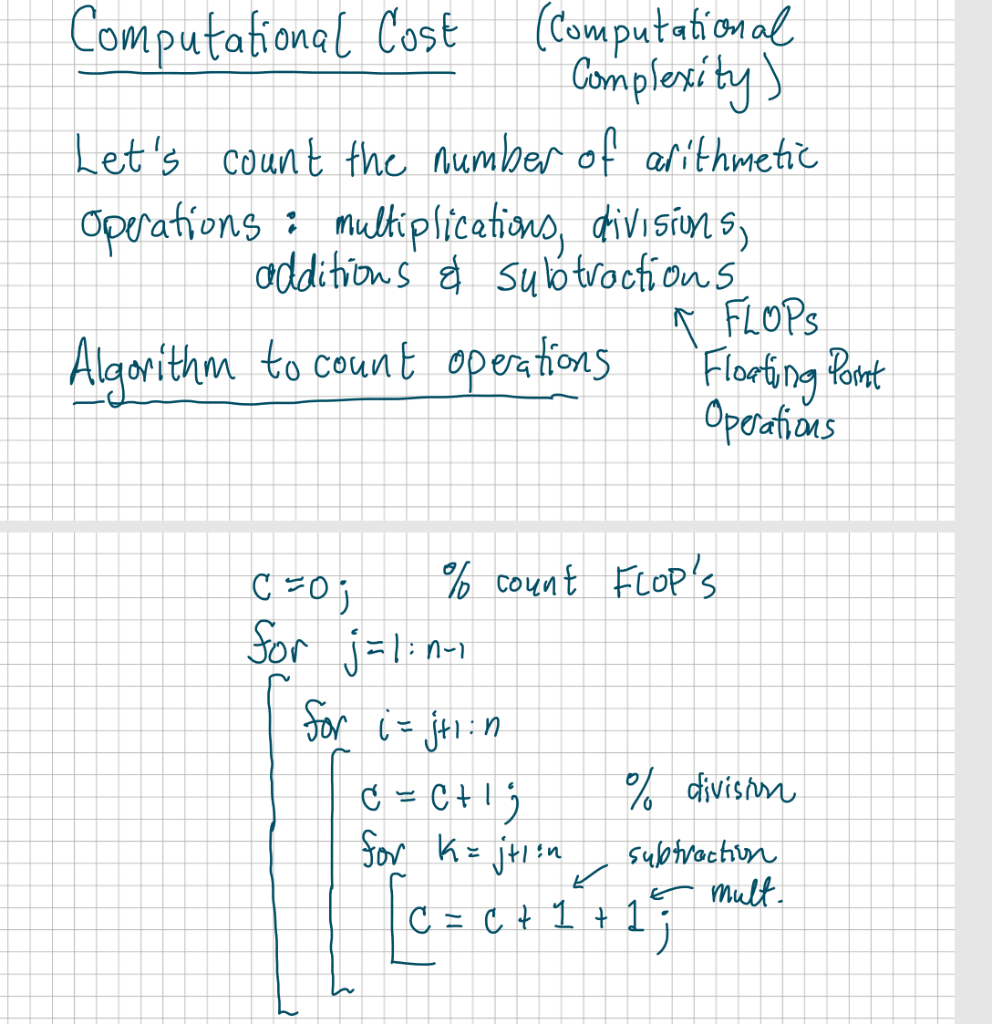 Computational Cost (Computational
Complexity)
Let's count the number of arithmetic
operations : multiplications, divisions,
additions & subtractions
↖ FLOPs
Algorithm to count operations Floating Point
Operations
C = 0 ; % count FLOP's
for j = 1 : n-1
for i = j+1 : n
C = C + 1 ; % division
for k = j+1 : n subtraction
C = C + 1 + 1 ; mult.